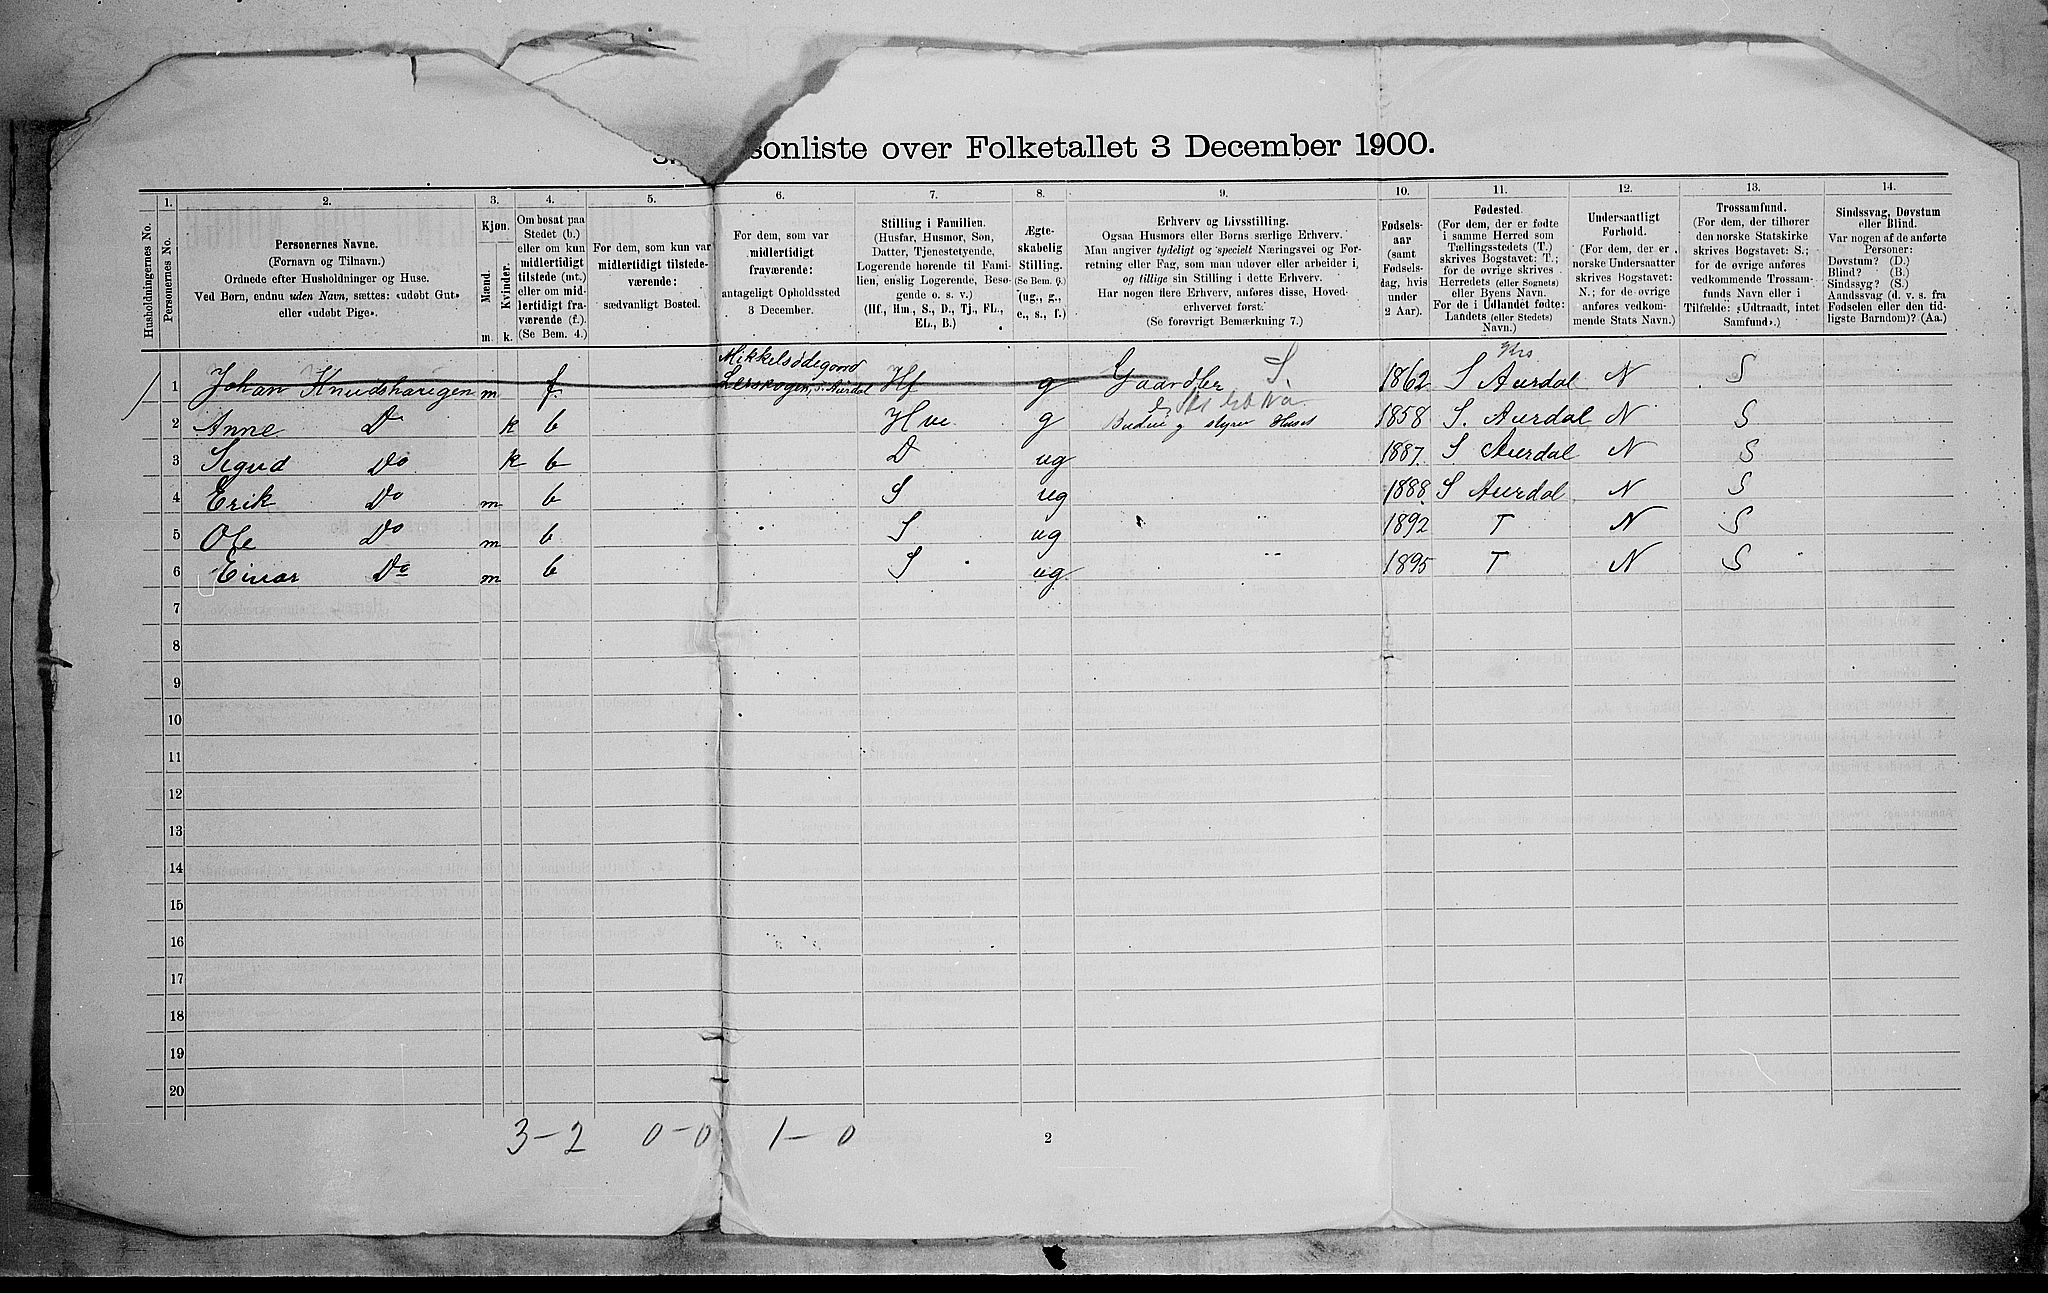 sonliste over Folketallet 3 December 1900.
1. 2. 3. 4. 5. 6. 7. 8. 9. 10. 11. 12. 13. 14.
Husholdningernes No.
Personernes No.
Personernes Navne.
(Fornavn og Tilnavn.)
Ordnede efter Husholdninger og Huse.
Ved Børn, endnu uden Navn, sættes: «udøbt Gut»
eller «udøbt Pige».
Kjøn.
Mænd.
Kvinder.
m. k.
Om bosat paa
Stedet (b.)
eller om kun
midlertidigt
tilstede (mt.)
eller om mid-
lertidigt fra-
værende (f.)
(Se Bem. 4.)
For dem, som kun var
midlertidigt tilstede-
værende:
sædvanligt Bosted.
For dem, som var
midlertidigt
fraværende:
antageligt Opholdssted
3 December.
Stilling i Familien.
(Husfar, Husmor, Søn,
Datter, Tjenestetyende,
Logerende hørende til Fami-
lien, enslig Logerende, Besø-
gende o. s. v.)
(Hf., Hm., S., D., Tj., FL.,
EL., B.)
Ægte-
skabelig
Stilling.
(Se Bem. 6.)
(ug., g.,
e., s., f.)
Erhverv og Livsstilling.
Ogsaa Husmors eller Børns særlige Erhverv.
Man angiver tydeligt og specielt Næringsvei og For-
retning eller Fag, som man udøver eller arbeider i,
og tillige sin Stilling i dette Erhverv.
Har nogen flere Erhverv, anføres disse, Hoved-
erhvervet først.
(Se forøvrigt Bemærkning 7.)
Fødsels-
aar
(samt
Fødsels-
dag, hvis
under
2 Aar).
Fødested.
(For dem, der er fødte
i samme Herred som
Tællingsstedets (T.)
skrives Bogstavet: T.;
for de øvrige skrives
Herredets (eller Sognets)
eller Byens Navn.
For de i Udlandet fødte:
Landets (eller Stedets)
Navn.)
Undersaatligt
Forhold.
(For dem, der er
norske Undersaatter
skrives Bogstavet:
N.; for de øvrige
anføres vedkom-
mende Stats Navn.)
Trossamfund.
(For dem, der tilhører
den norske Statskirke
skrives Bogstavet: S.;
for de øvrige anføres
vedkommende Trossam-
funds Navn eller i
Tilfælde: «Udtraadt, intet
Samfund».)
Sindssvag, Døvstum
eller Blind.
Var nogen af de anførte
Personer:
Døvstum? (D.)
Blind? (B.)
Sindssyg? (S.)
Aandssvag (d. v. s. fra
Fødselen eller den tid-
ligste Barndom)? (Aa.)
Mikkelsødegaard
1 Johan Knudshaugen m f Lerskogen, S. Aurdal Hf g Gaardbr S. 1862 S Aurdal N S
2 Anne Do k b g styrer Huset 1858 S. Aurdal N S
3 Sigrid Do k b D ug 1887 S Aurdal N S
4 Erik Do m b S ug 1888 S Aurdal N S
5 Ole Do m b S ug " 1892 T N S
6 Einar Do m b S ug " 1895 T N S
7
8
9
10
11
12
13
14
15
16
17
18
19
20
3-2 0-0 1-0
2